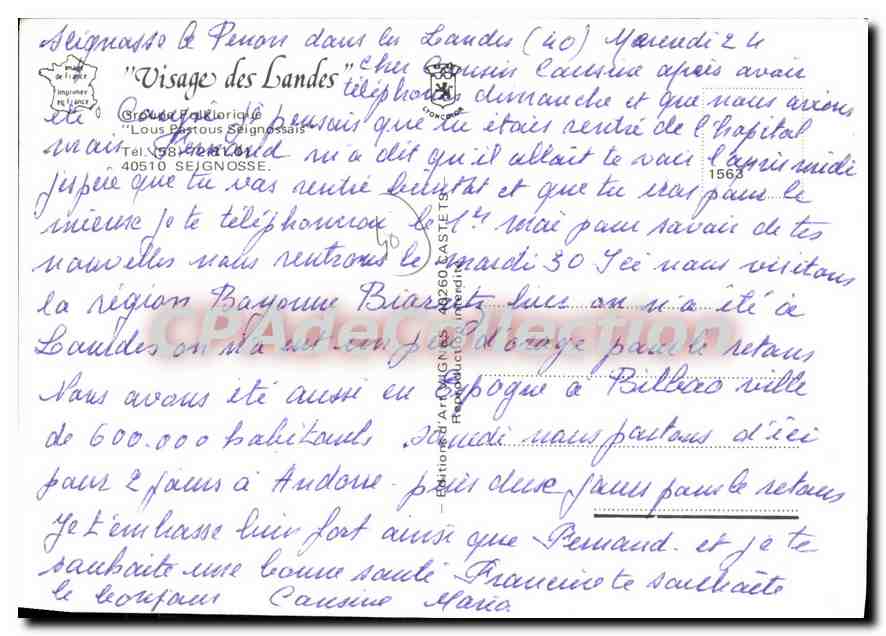 Seignosse le Penon dans les Landes (40) Mercredi 24
image de France
imprimée en FRANCE
"Visage des Landes"
LYONCOLOR
Cher Cousin Cousine après avoir
téléphoné dimanche et que nous avions
été coupé je pensais que tu étais rentré de l'hopital
Groupe Folklorique
"Lous Pastous Seignossais"
Tél. (58) 72.81.01
40510 SEIGNOSSE.
1563
mais Fernand m'a dit qu'il allait te voir l'après midi
j'espère que tu vas rentré bientôt et que tu iras pour le
mieux je te téléphonerai le 1er mai pour savoir de tes
50
nouvelles nous rentrons le mardi 30 Ici nous visitons
la région Bayonne Biarritz hier on n'a été à
Lourdes on n'a eut un peu d'orage pour le retour
Nous avons été aussi en Espagne à Bilbao ville
de 600.000 habitants samedi nous partons d'ici
pour 2 jours à Andorre puis deux jours pour le retour
Je t'embrasse bien fort ainsi que Fernand et je te
souhaite une bonne santé Francine te souhaite
le bonjour Cousine Maria
Editions d'Art VIGNES - 40260 CASTETS
Reproduction interdite
CPADeCollection